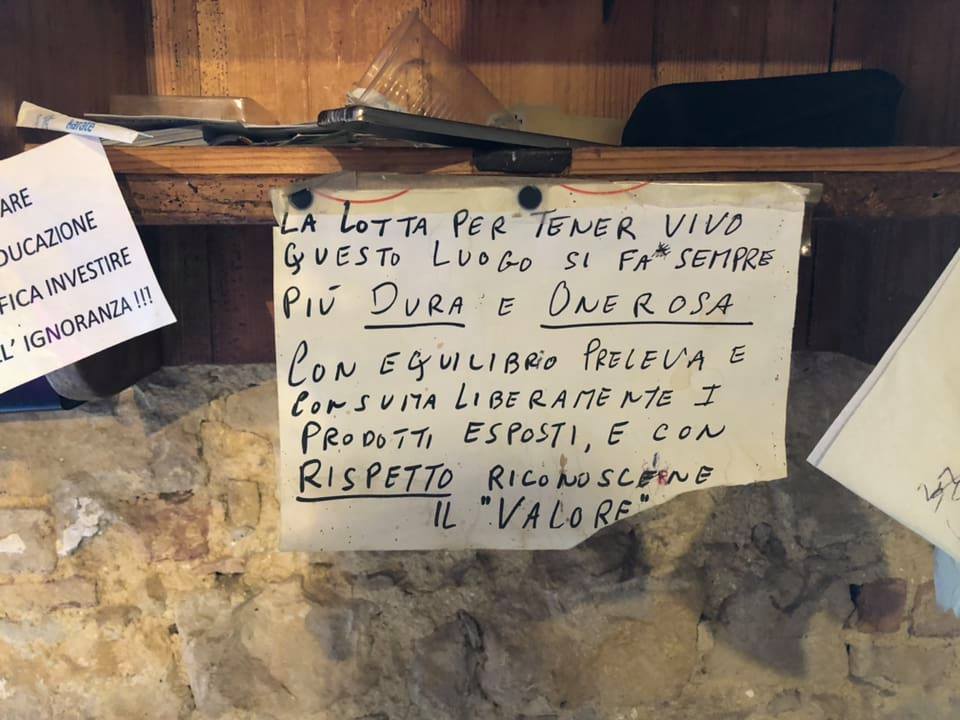 LA LOTTA PER TENER VIVO
QUESTO LUOGO SI FA* SEMPRE
PIÚ DURA E ONEROSA
CON EQUILIBRIO PRELEVA E
CONSUMA LIBERAMENTE I
PRODOTTI ESPOSTI, E CON
RISPETTO RICONOSCERNE
IL "VALORE"
ARE
DUCAZIONE
FICA INVESTIRE
L' IGNORANZA !!!